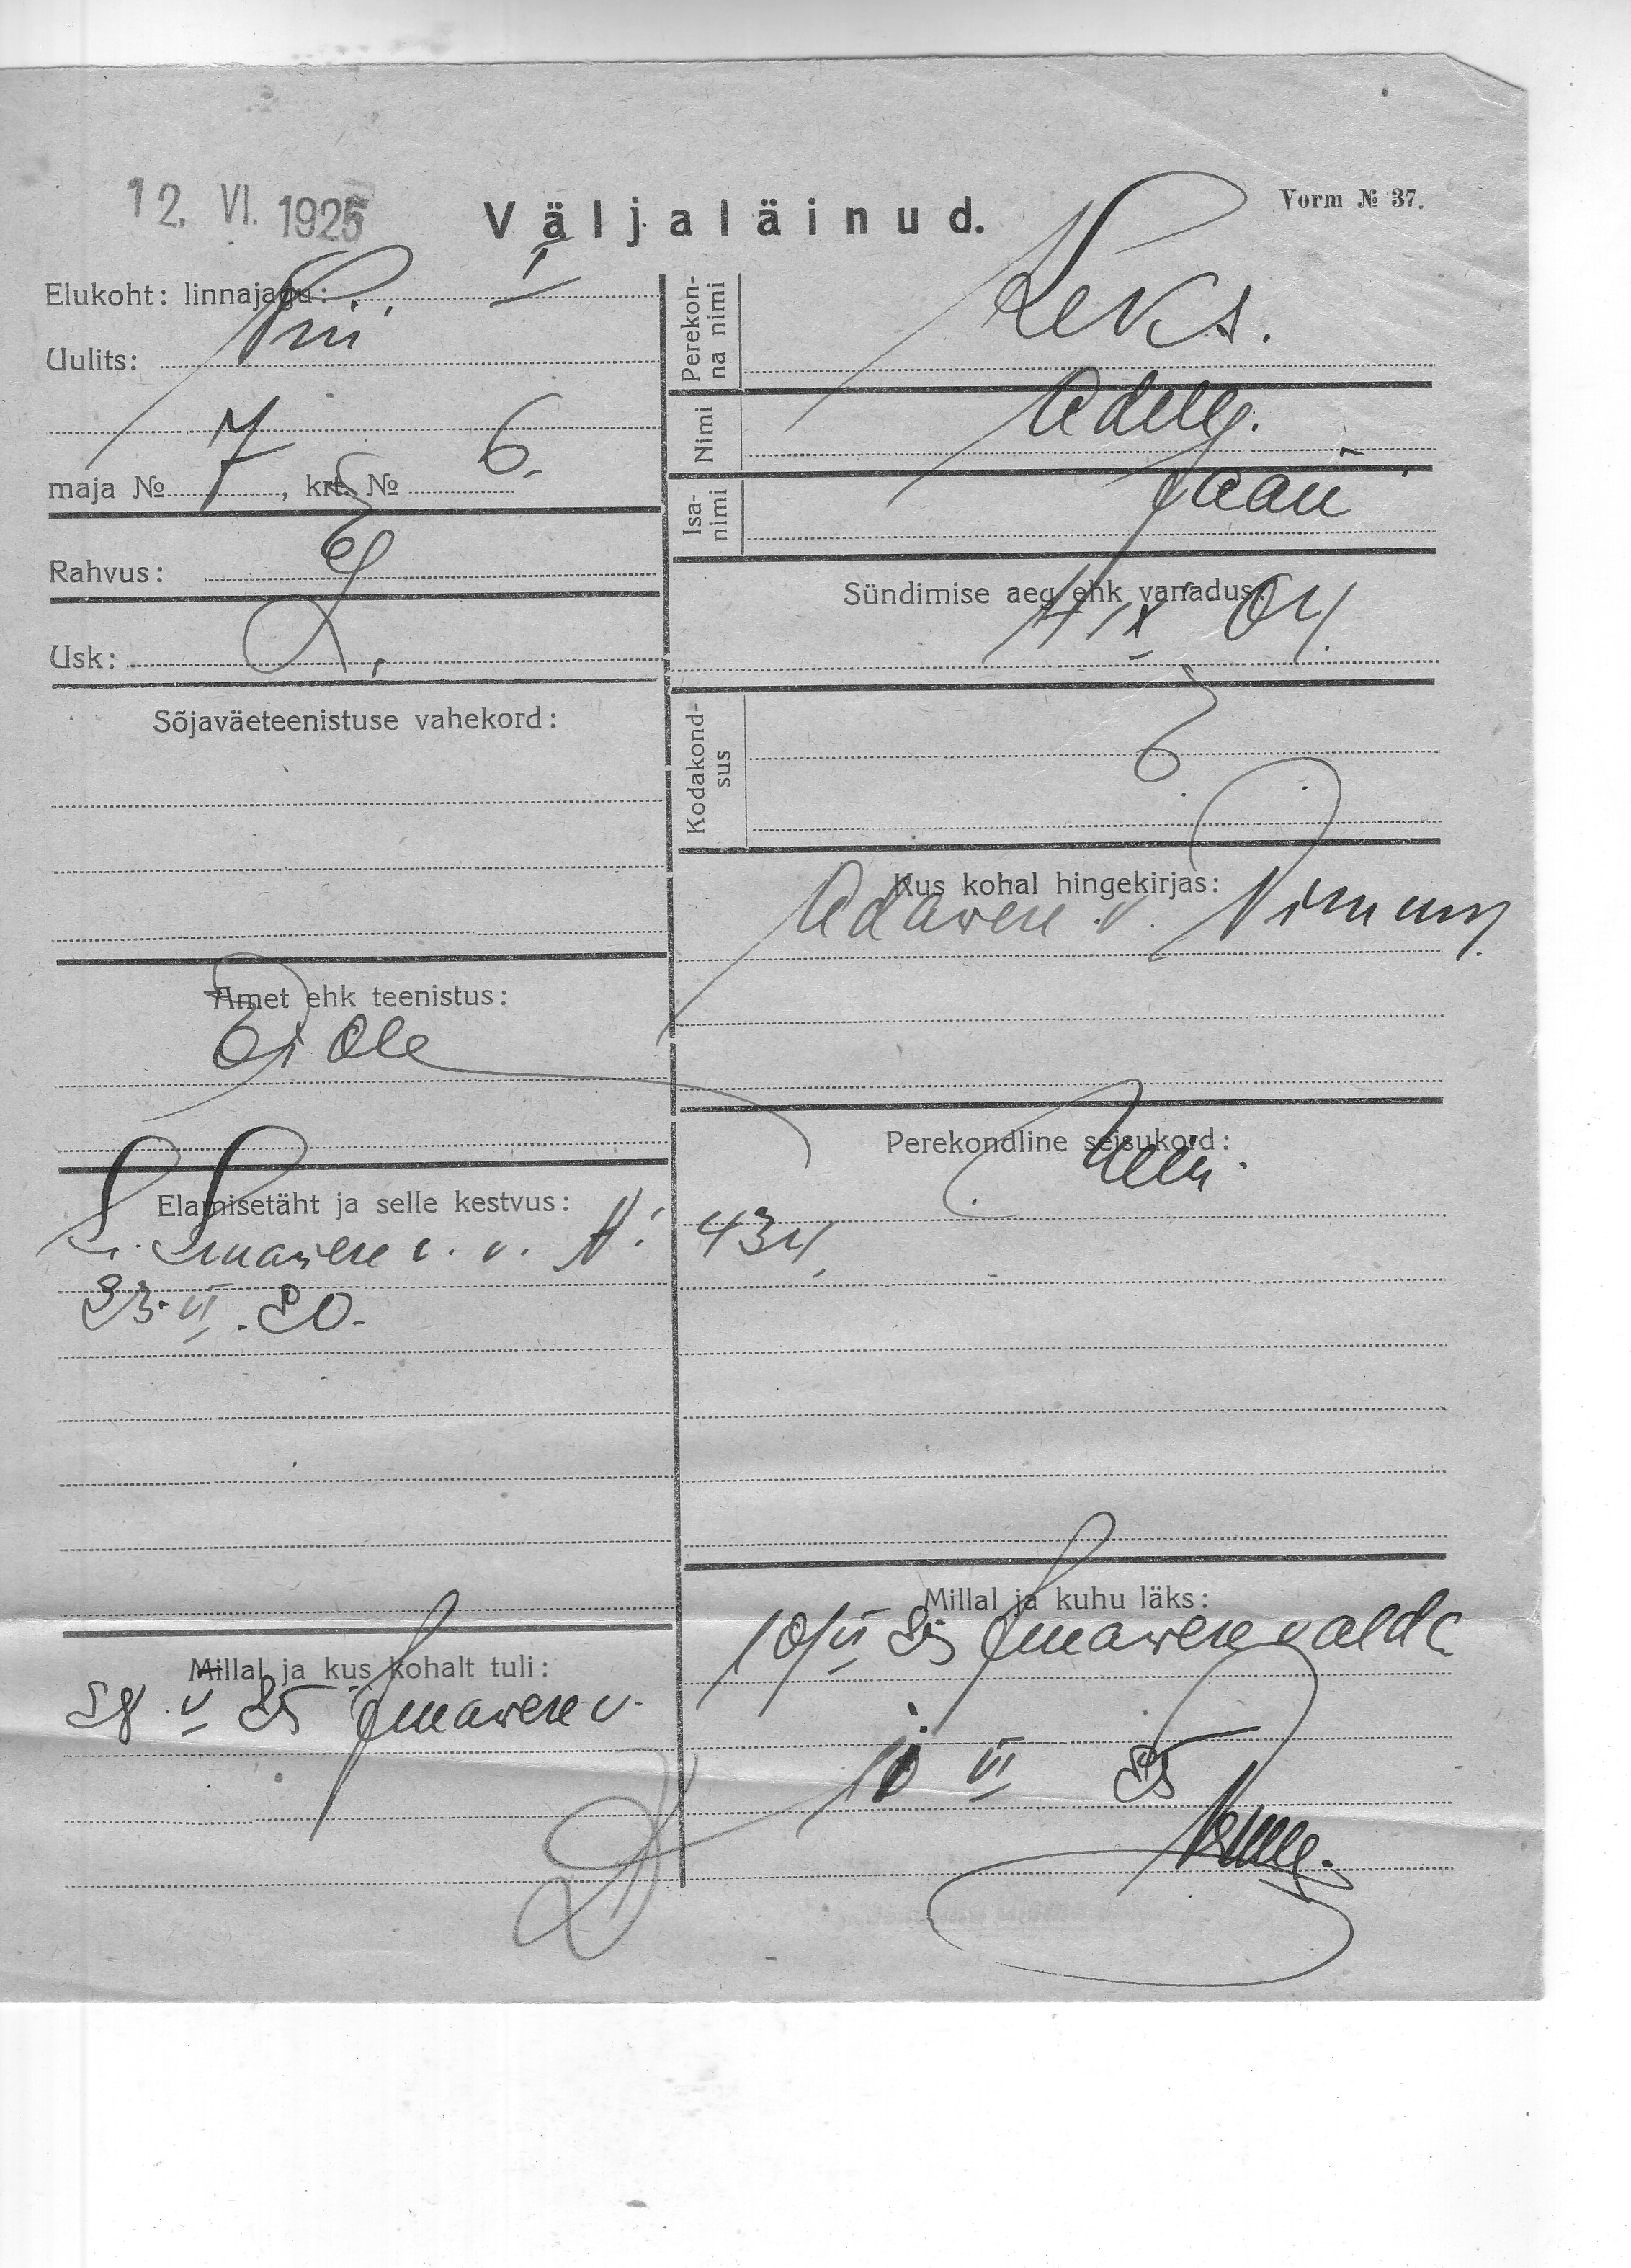 12. VI. 1925
Väljaläinud.
Vorm № 37.
Elukoht: linnajagu: I
Uulits:
maja № 7, krt. № 6.
Rahvus: E
Usk: L.
Sõjaväeteenistuse vahekord:
Amet ehk teenistus:
Ei Ole
Elamisetäht ja selle kestvus:
v. v. N: 434
23. VI. 20.
Millal ja kus kohalt tuli:
28. V 25 Imawere v.
Perekonna nimi
Keks.
Nimi
Isanimi
Jaan
Sündimise aeg ehk vanadus:
4 IX 04.
Kodakondsus
E
Kus kohal hingekirjas:
Adawere v.
Perekondline seisukord:
Millal ja kuhu läks:
10/VI 25 Imawere valda
10 VI 25